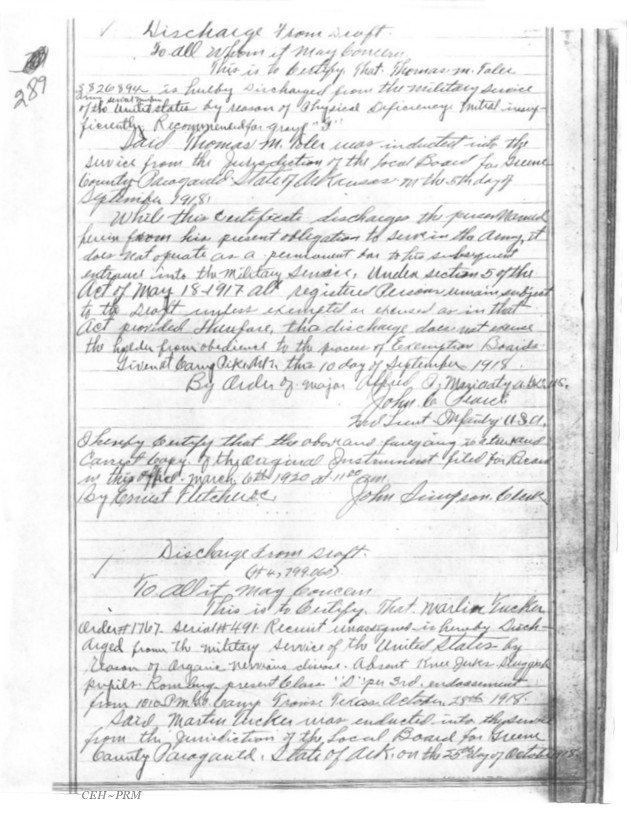 289
Discharge From Draft.
To all Whom it May Concern
This is to Certify. That. Thomas M. Toler
is hereby Discharged from the Military service
Army serial number
of the United states by reason of Physical Deficiency
ficiently Recommended for group
Said Thomas M. Toler was inducted into the
service from the Jurisdiction of the Local Board for Greene
County Paragould State of Arkansas on the 5th day of
September 1918.
While this Certificate discharges the person Named
herein from his present obligation to serve in the Army, it
does not operate as a permanent bar to his subsequent
entrance into the Military Service. Under section 5 of the
Act of May 18-1917 all registered Persons remain subject
to the Draft unless exempted or excused as in that
Act provided Therefore, this discharge does not excuse
the holder from obedience to the process of Exemption Boards
Given at Camp Pike Ark. this 10 day of September 1918.
By Order of Major Alfred P.
John C. Pearce
Infantry U.S.A.
I hereby Certify that the above and foregoing is a true and
Correct Copy of the Original Instrument filed for Record
in this office March 6th 1920 at 11 am
By Ernest Fletcher D.C. John Simpson Clerk
Discharge From Draft.
(#4,799,060)
To All it May Concern
This is to Certify. That. Martin Tucker
Order #1767. Serial #491. Recruit unassigned is hereby Disch-
arged from the military service of the United States by
reason of Organic nervous disease. Absent Knee Jerks Sluggish
pupils. Romberg present Class "D" per 3rd. endorsement
from Camp Travis Texas October 28th 1918.
Said, Martin Tucker was inducted into the service
from the Jurisdiction of the Local Board for Greene
County Paragould, State of Ark. on the 25th day of October 1918.
CEH~PRM